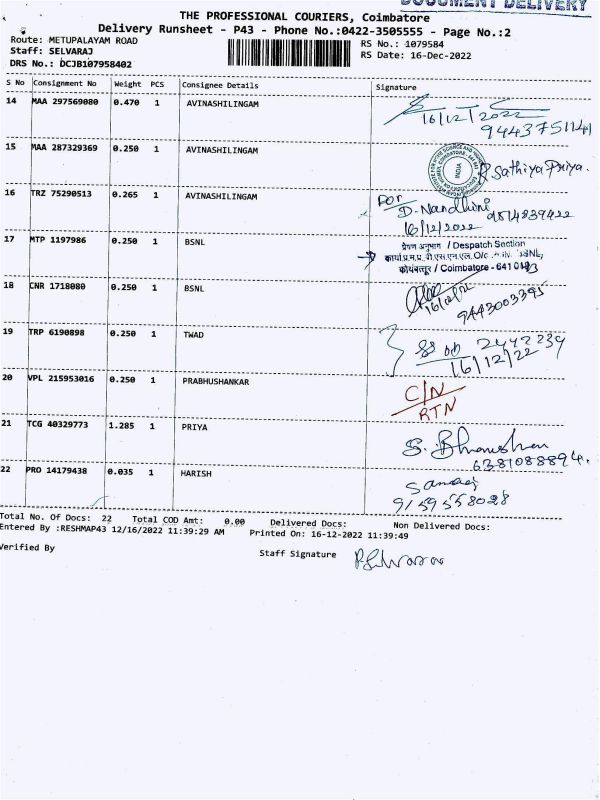 DOCUMENT DELIVERY
THE PROFESSIONAL COURIERS, Coimbatore
Delivery Runsheet - P43 - Phone No.:0422-3505555 - Page No.:2
Route: METUPALAYAM ROAD
RS No.: 1079584
Staff: SELVARAJ
RS Date: 16-Dec-2022
DRS No.: DCJB107958402
S No Consignment No Weight PCS Consignee Details Signature
14 MAA 297569080 0.470 1 AVINASHILINGAM
16/12/2022
9443751141
15 MAA 287329369 0.250 1 AVINASHILINGAM
INDIA
R. Sathiya Priya.
16 TRZ 75290513 0.265 1 AVINASHILINGAM
For
D. Nandhini 9814839422
16/12/2022
17 MTP 1197986 0.250 1 BSNL
प्रेषण अनुभाग / Despatch Section
BSNL,
कोयंबत्तूर / Coimbatore - 641 043
18 CNR 1718080 0.250 1 BSNL
9443003395
19 TRP 6190898 0.250 1 TWAD
2442239
16/12/22
20 VPL 215953016 0.250 1 PRABHUSHANKAR
C/N
RTN
21 TCG 40329773 1.285 1 PRIYA
6381088894.
22 PRO 14179438 0.035 1 HARISH
9159558028
Total No. Of Docs: 22 Total COD Amt: 0.00 Delivered Docs: Non Delivered Docs:
Entered By :RESHMAP43 12/16/2022 11:39:29 AM Printed On: 16-12-2022 11:39:49
Verified By Staff Signature